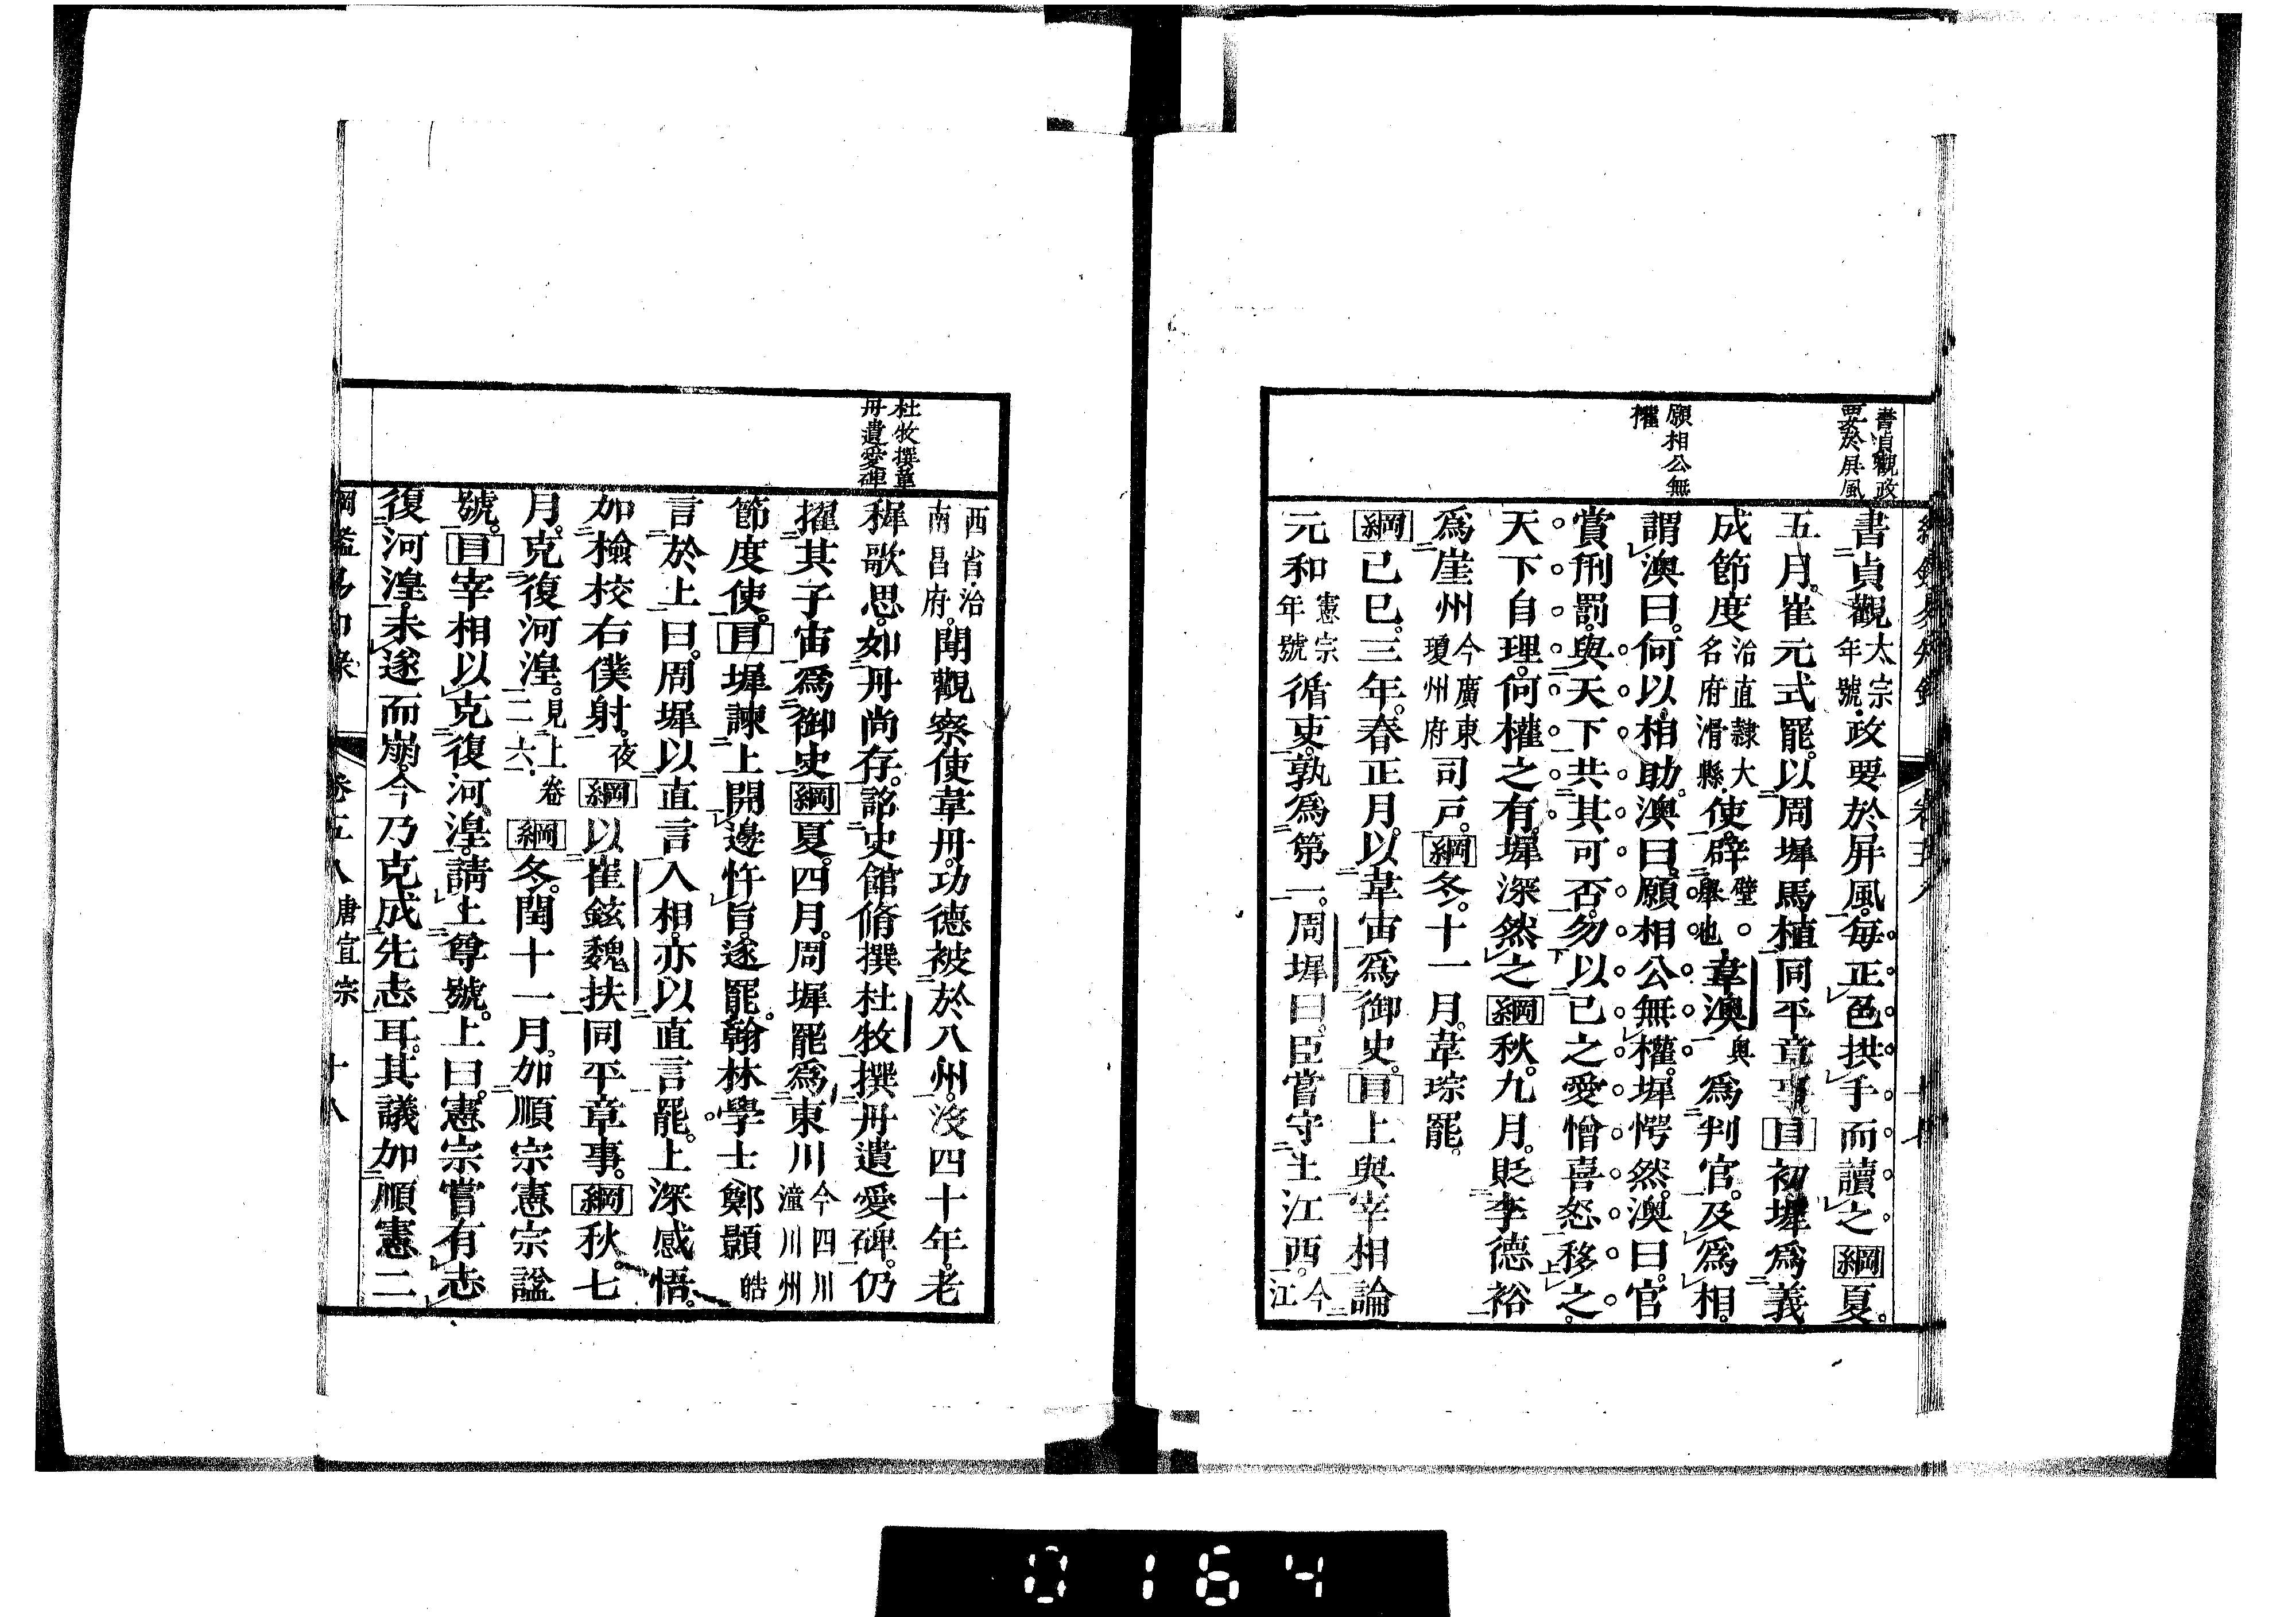 書貞觀政
要於屏風
願相公無
權
書貞觀太宗年號政要於屏風。每正色拱手而讀之綱夏。
五月。崔元式罷。以周墀馬植同平章事。目初墀爲義
成節度治直隸大名府滑縣使。辟璧。舉也韋澳奧爲判官。及爲相。
謂澳曰。何以相助。澳曰。願相公無權。墀愕然。澳曰。官
賞刑罰。與天下共其可否。勿以己之愛憎喜怒移之。
天下自理。何權之有。墀深然之綱秋。九月。貶李德裕
爲崖州今廣東瓊州府司戶。綱冬。十一月。韋琮罷。
綱己巳。三年。春正月。以韋宙爲御史。目上與宰相論
元和憲宗年號循吏。孰爲第一。周墀曰。臣嘗守土江西。今江
杜牧撰韋
丹遺愛碑
西省治南昌府。聞觀察使韋丹。功德被於八州。沒四十年。老
稺歌思。如丹尚存。詔史館脩撰杜牧撰丹遺愛碑。仍
擢其子宙爲御史綱夏。四月。周墀罷爲東川今四川潼川州
節度使。目墀諫上開邊忤旨。遂罷。翰林學士鄭顥皓
言於上曰。周墀以直言入相。亦以直言罷。上深感悟。
加檢校右僕射。夜綱以崔鉉魏扶同平章事。綱秋。七
月。克復河湟。見上卷二六綱冬。閏十一月。加順宗憲宗諡
號。目宰相以克復河湟。請上尊號。上曰。憲宗嘗有志
復河湟。未遂而崩。今乃克成先志耳。其議加順憲二
綱鑑易知錄 卷五八 唐宣宗 十八
0164